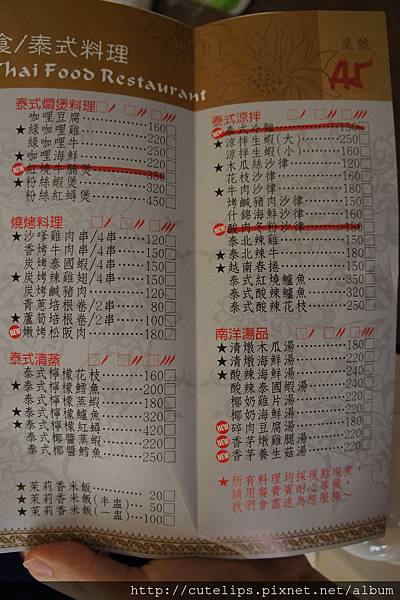 食/泰式料理
Thai Food Restaurant
桌號
A5
泰式燜煲料理
咖哩豆腐 160
★綠咖哩雞 220
綠咖哩牛 220
★咖哩海鮮 220
NEW 紅燒牛腩煲 350
★粉絲蝦煲
粉絲紅蟳煲
燒烤料理
★沙嗲雞肉串/4串 120
香烤牛肉串/4串 150
炭烤泰國蝦/4串 150
★炭烤辣雞翅/4串 150
炭烤鹹豬肉 120
青蔥培根卷/2串 80
★蘆筍培根卷/2串 100
NEW 嫩烤松阪肉 180
泰式清蒸
泰式檸檬花枝 160
★泰式檸檬鱈魚 200
泰式檸檬蒸蝦 180
★泰式檸檬鱸魚 320
★泰式檸檬紅蟳
泰式椰醬蒸蝦 220
泰式椰醬鱈魚 250
★茉莉香米飯 20
★茉莉香米飯(半盅) 50
★茉莉香米飯(一盅) 100
泰式涼拌
NEW 泰式冷麵 150
★涼拌生蝦(大) 250
涼拌生蝦(小)
★木瓜絲沙律
花枝沙律
★牛肉沙律
烤鹹豬肉沙律
什錦海鮮沙律
NEW 酸肉冬粉沙律 180
泰北辣雞
★泰北辣牛
★越南春捲
泰式紅燒鱸魚 350
泰式酸辣鱸魚 320
泰式酸辣花枝 250
南洋湯品
★清燉木瓜湯 180
★清燉海鮮湯 220
★酸辣海鮮湯 240
酸辣泰國蝦湯 180
椰奶雞片湯 200
椰奶海鮮湯 220
NEW 碎肉豆腐湯 200
NEW ★香茅燉雞腿湯 220
NEW ★香茅養生菇湯 250
★所有用料均採現點現煮
請用餐貴賓耐心等候
我們會盡速為您服務~
http://cutelips.pixnet.net/album